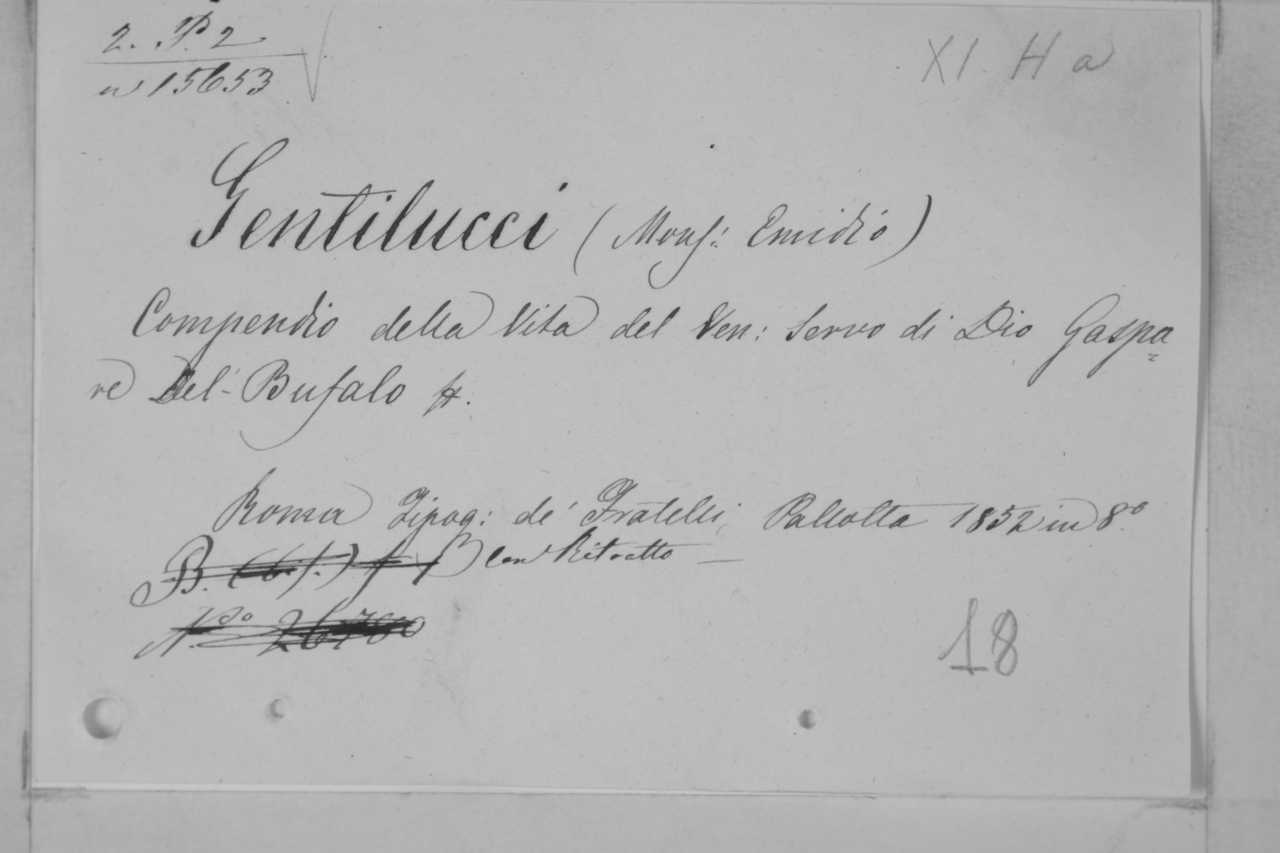 2. P. 2
XI H a
n 15653
Gentilucci (Monsr: Emidio)
Compendio della Vita del Ven: Servo di Dio Gaspa=
re Del-Bufalo
Roma Tipog: de' Fratelli Pallotta 1852 in 8º
B. con Ritratto —
N.º 26760
18